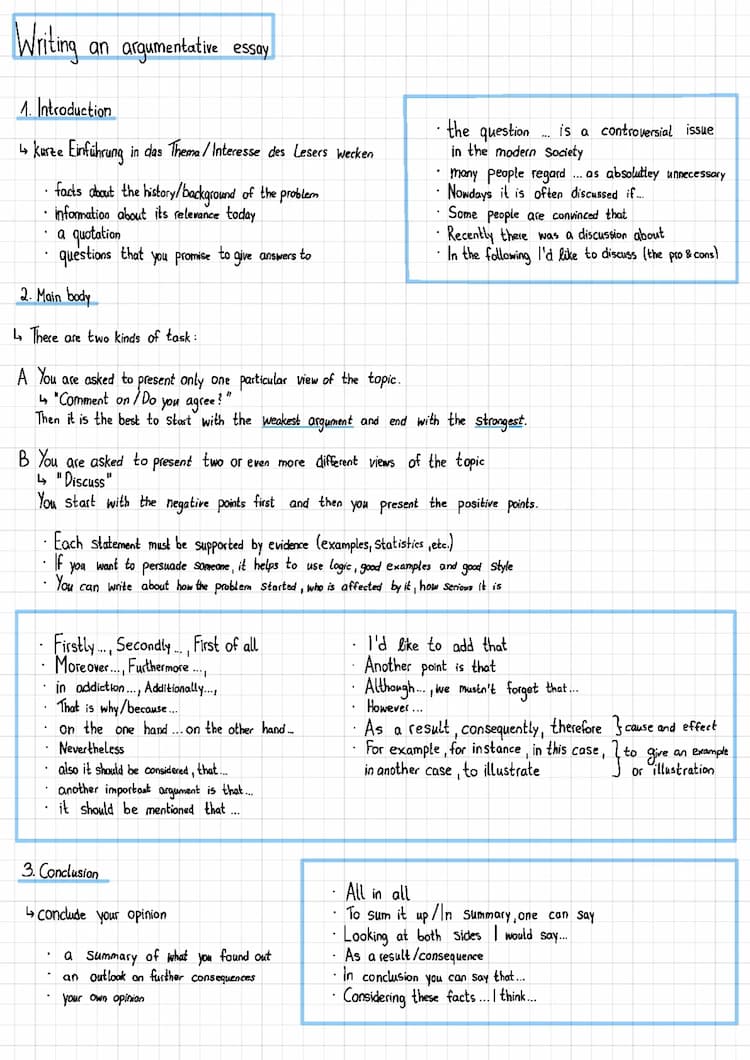 Writing an argumentative essay
1. Introduction
↳ kurze Einführung in das Thema/Interesse des Lesers wecken
· facts about the history/background of the problem
· information about its relevance today
· a quotation
· questions that you promise to give answers to
· the question ... is a controversial issue
in the modern society
· many people regard ... as absolutley unnecessary
· Nowdays it is often discussed if...
· Some people are convinced that
· Recently there was a discussion about
· In the following I'd like to discuss (the pro & cons)
2. Main body
↳ There are two kinds of task:
A You are asked to present only one particular view of the topic.
↳ "Comment on/Do you agree?"
Then it is the best to start with the weakest argument and end with the strongest.
B You are asked to present two or even more different views of the topic
↳ "Discuss"
You start with the negative points first and then you present the positive points.
· Each statement must be supported by evidence (examples, statistics, etc.)
· If you want to persuade someone, it helps to use logic, good examples and good style
· You can write about how the problem started, who is affected by it, how serious it is
· Firstly ..., Secondly ..., First of all
· Moreover..., Furthermore ...,
· in addiction..., Additionally...,
· That is why/because...
· on the one hand ... on the other hand...
· Nevertheless
· also it should be considered, that...
· another important argument is that...
· it should be mentioned that ...
· I'd like to add that
· Another point is that
· Although..., we mustn't forget that...
· However...
· As a result, consequently, therefore } cause and effect
· For example, for instance, in this case, } to give an example
in another case, to illustrate } or illustration
3. Conclusion
↳ conclude your opinion
· a summary of what you found out
· an outlook on further consequences
· your own opinion
· All in all
· To sum it up/In summary, one can say
· Looking at both sides I would say...
· As a result/consequence
· In conclusion you can say that...
· Considering these facts ... I think...